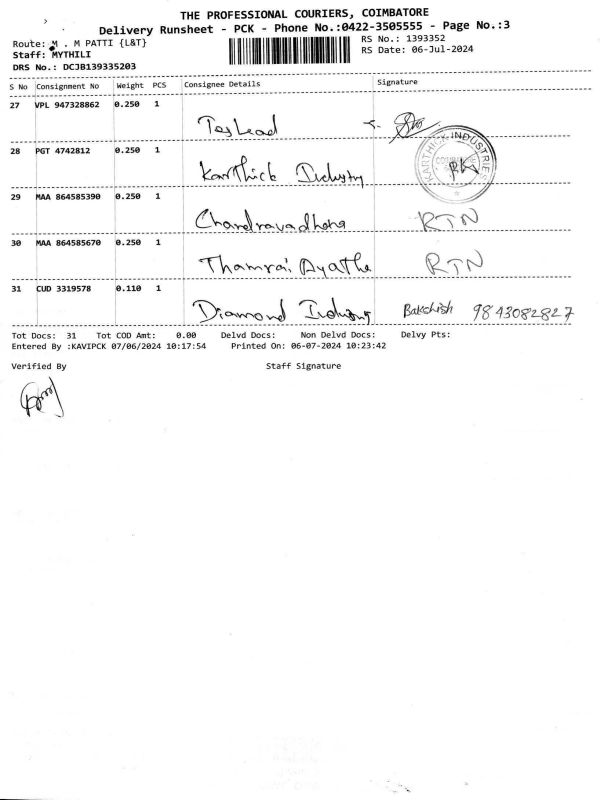 THE PROFESSIONAL COURIERS, COIMBATORE
Delivery Runsheet - PCK - Phone No.:0422-3505555 - Page No.:3
Route: M . M PATTI {L&T} RS No.: 1393352
Staff: MYTHILI RS Date: 06-Jul-2024
DRS No.: DCJB139335203
S No Consignment No Weight PCS Consignee Details Signature
27 VPL 947328862 0.250 1
28 PGT 4742812 0.250 1 Karthick Industry KARTHICK INDUSTRIES
29 MAA 864585390 0.250 1 RTN
30 MAA 864585670 0.250 1 RTN
31 CUD 3319578 0.110 1 Diamond Bakchish 9843082827
Tot Docs: 31 Tot COD Amt: 0.00 Delvd Docs: Non Delvd Docs: Delvy Pts:
Entered By :KAVIPCK 07/06/2024 10:17:54 Printed On: 06-07-2024 10:23:42
Verified By Staff Signature